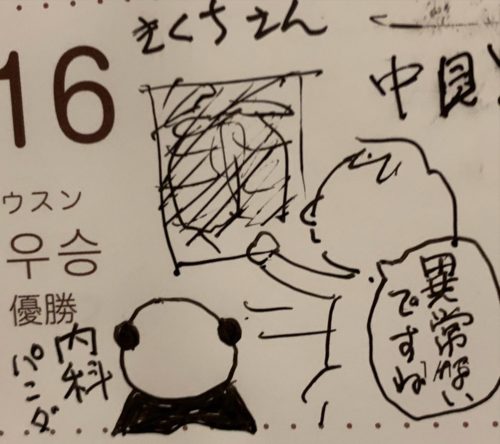 きくちさん
16
中見
ウスン
우승
優勝
異常ない
ですね
内科
パンダ